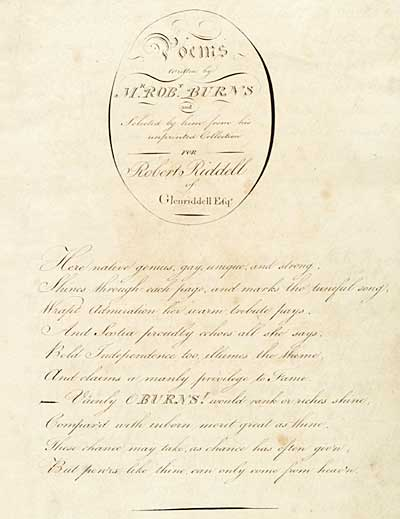 Poems
written by
Mr. ROBt. BURNS
and
Selected by him from his
unprinted Collection
FOR
Robert Riddell
of
Glenriddell Esqr.
Here native genius, gay, unique, and strong,
Shines through each page, and marks the tuneful song;
Wrapt Admiration her warm tribute pays,
And Scotia proudly echoes all she says;
Bold Independence too, illumes the theme,
And claims a manly privilege to Fame.
— Vainly O BURNS! would rank or riches shine,
Compar'd with inborn merit great as thine.
These chance may take, as chance has often giv'n,
But pow'rs like thine can only come from heav'n.